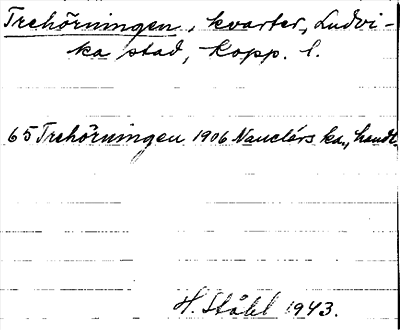 Trehörningen, kvarter, Ludvi-
ka stad, Kopp. l.
65 Trehörningen 1906 Nauclérs ka., handl.
H. Ståhl 1943.